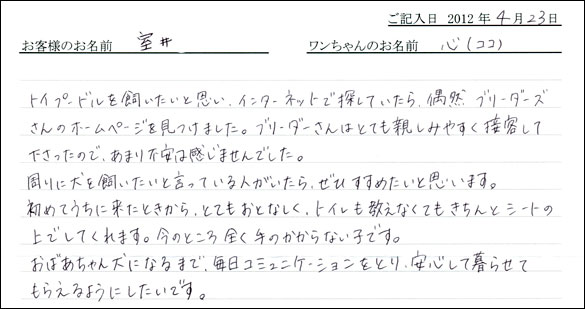 ご記入日 2012年4月23日
お客様のお名前 室井 ワンちゃんのお名前 心(ココ)
トイプードルを飼いたいと思い、インターネットで探していたら、偶然 ブリーダーズ
さんのホームページを見つけました。ブリーダーさんはとても親しみやすく接客して
下さったので、あまり不安は感じませんでした。
周りに犬を飼いたいと言っている人がいたら、ぜひすすめたいと思います。
初めてうちに来たときから、とてもおとなしく、トイレも教えなくてもきちんとシートの
上でしてくれます。今のところ全く手のかからない子です。
おばあちゃん犬になるまで、毎日コミュニケーションをとり、安心して暮らせて
もらえるようにしたいです。